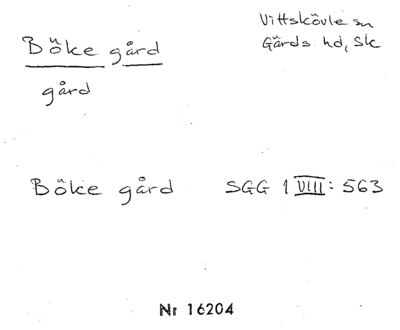 Böke gård
gård
Vittskövle sn
Gärds hd, Sk
Böke gård SGG 1 VIII: 563
Nr 16204